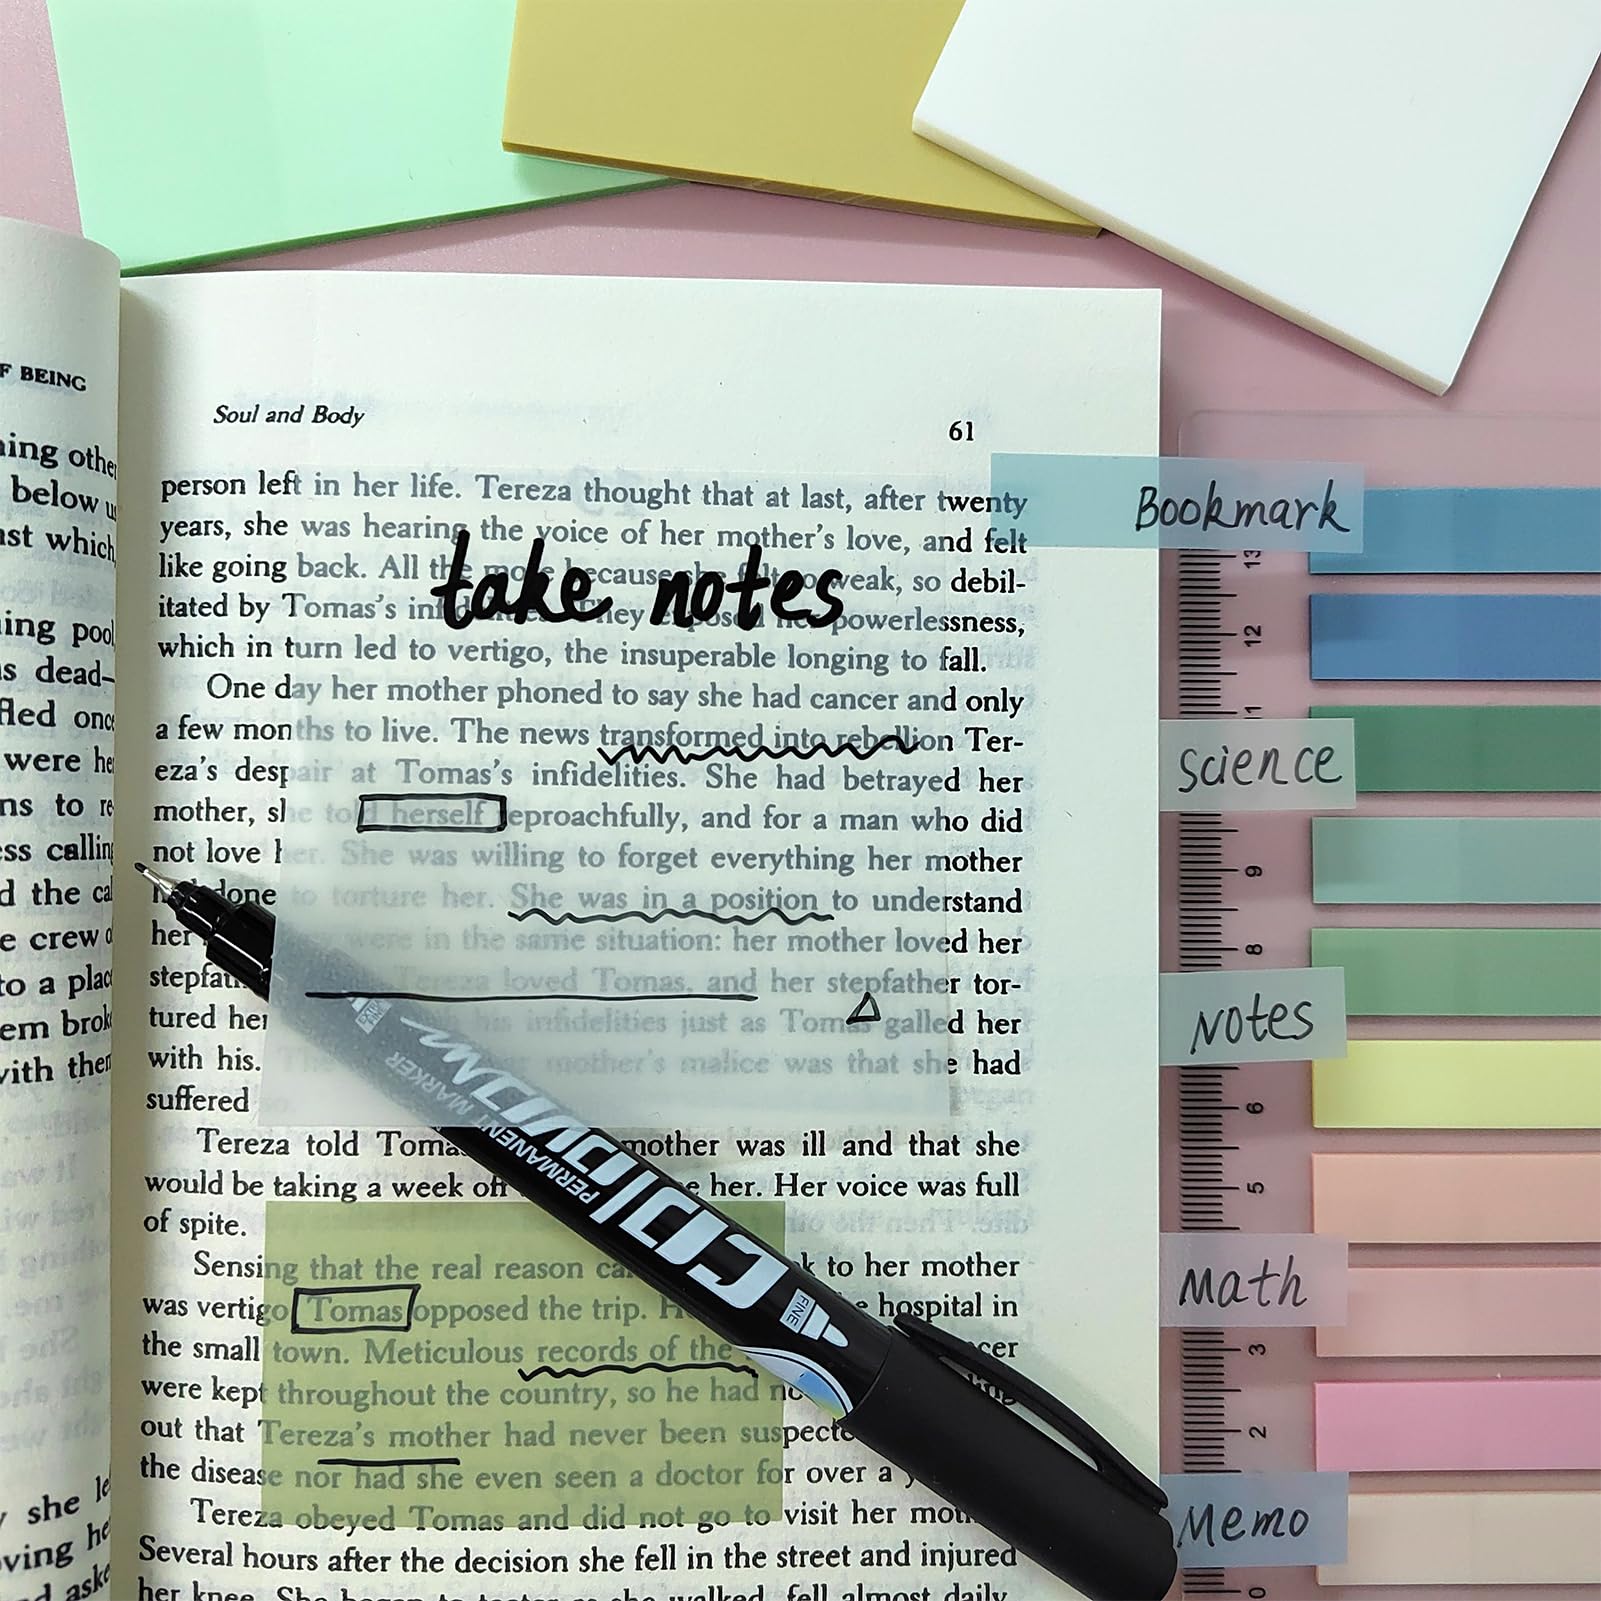 F BEING
ning other
below us
nst which,
ning pool
as dead—
fled once
were her
ns to re-
ess calling
d the
e crew
to a place
em broke
with them
she
oving
and
Soul and Body
61
person left in her life. Tereza thought that at last, after twenty
years, she was hearing the voice of her mother's love, and felt
like going back. All the because she felt so weak, so debil-
itated by Tomas's They exposed her powerlessness,
which in turn led to vertigo, the insuperable longing to fall.
take notes
One day her mother phoned to say she had cancer and only
a few months to live. The news transformed into rebellion Ter-
eza's despair at Tomas's infidelities. She had betrayed her
mother, she told herself reproachfully, and for a man who did
not love her. She was willing to forget everything her mother
had done to torture her. She was in a position to understand
her were in the same situation: her mother loved her
Tereza loved Tomas, and her stepfather tor-
tured her his infidelities just as Tomas galled her
with his. The mother's malice was that she had
suffered
Tereza told mother was ill and that she
would be taking a week her. Her voice was full
of spite.
Sensing that the real reason to her mother
was vertigo, Tomas opposed the trip. hospital in
the small town. Meticulous records of the
were kept throughout the country, so he had
out that Tereza's mother had never been
the disease nor had she even seen a doctor for over a
Tereza obeyed Tomas and did not go to visit her
Several hours after the decision she fell in the street and injured
her knee. She began to teeter as she walked, fell almost daily,
COLOVON
PERMANENT MARKER
FINE
Bookmark
science
Notes
Math
Memo
13
12
11
9
8
6
5
3
2
0